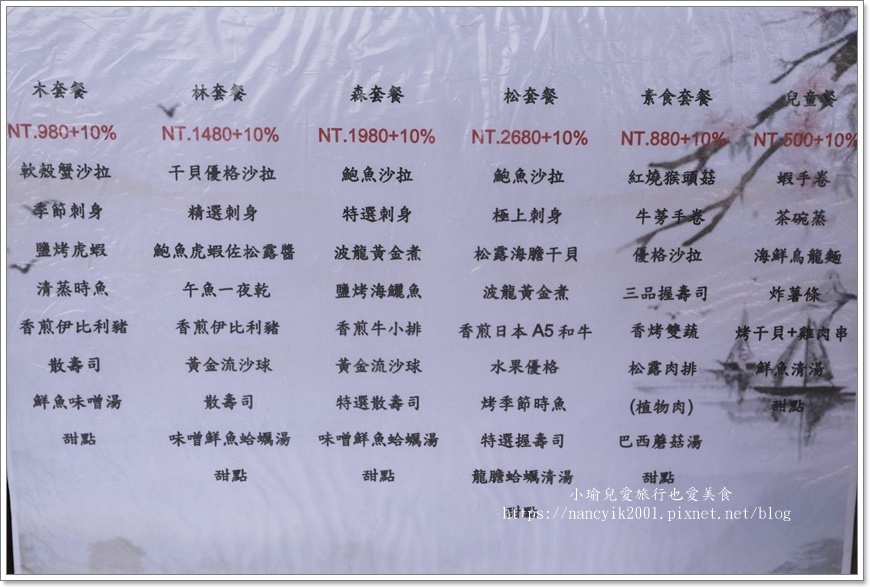 木套餐
NT.980+10%
軟殼蟹沙拉
季節刺身
鹽烤虎蝦
清蒸時魚
香煎伊比利豬
散壽司
鮮魚味噌湯
甜點
林套餐
NT.1480+10%
干貝優格沙拉
精選刺身
鮑魚虎蝦佐松露醬
午魚一夜乾
香煎伊比利豬
黃金流沙球
散壽司
味噌鮮魚蛤蠣湯
甜點
森套餐
NT.1980+10%
鮑魚沙拉
特選刺身
波龍黃金煮
鹽烤海鱺魚
香煎牛小排
黃金流沙球
特選散壽司
味噌鮮魚蛤蠣湯
甜點
松套餐
NT.2680+10%
鮑魚沙拉
極上刺身
松露海膽干貝
波龍黃金煮
香煎日本A5和牛
水果優格
烤季節時魚
特選握壽司
龍膽蛤蠣清湯
甜點
素食套餐
NT.880+10%
紅燒猴頭菇
牛蒡手卷
優格沙拉
三品握壽司
香烤雙蔬
松露肉排
(植物肉)
巴西蘑菇湯
甜點
兒童餐
NT.500+10%
蝦手卷
茶碗蒸
海鮮烏龍麵
炸薯條
烤干貝+雞肉串
鮮魚清湯
甜點
小瑜兒愛旅行也愛美食
https://nancyik2001.pixnet.net/blog